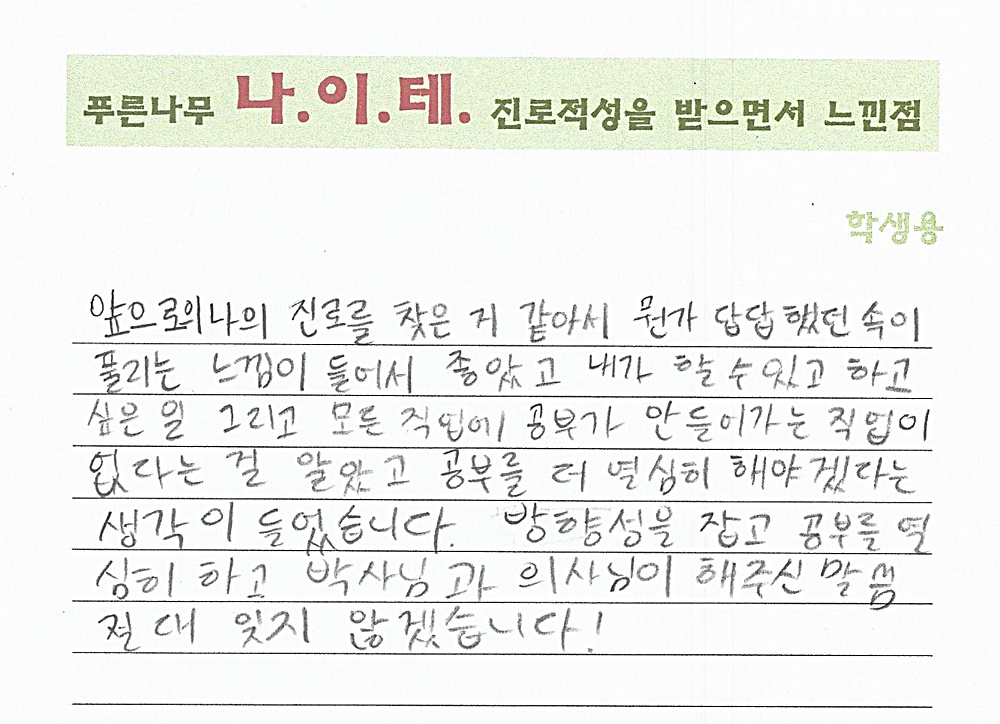 푸른나무 나.이.테. 진로적성을 받으면서 느낀점
학생용
앞으로의 나의 진로를 찾은 거 같아서 뭔가 답답했던 속이
풀리는 느낌이 들어서 좋았고 내가 할 수 있고 하고
싶은 일 그리고 모든 직업에 공부가 안 들어가는 직업이
없다는 걸 알았고 공부를 더 열심히 해야겠다는
생각이 들었습니다. 방향성을 잡고 공부를 열
심히 하고 박사님과 의사님이 해주신 말씀
절대 잊지 않겠습니다!